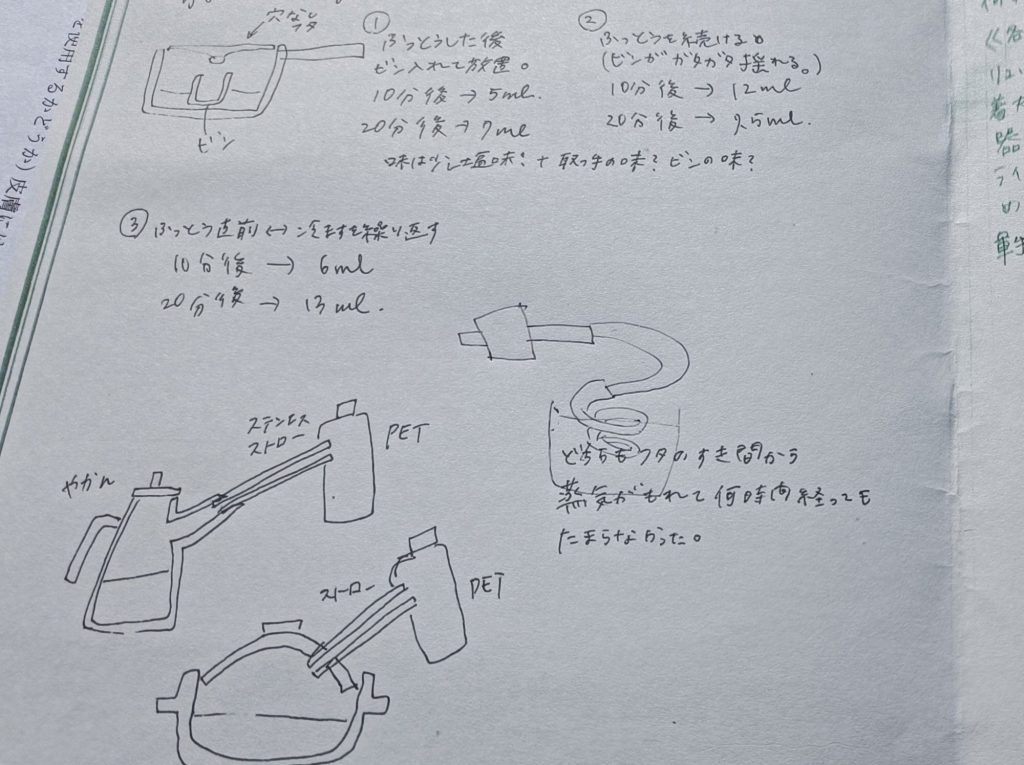 て使用するかどうか)皮膚に
穴なし
フタ
ビン
①
ふっとうした後
ビン入れて放置。
10分後 → 5ml.
20分後 → 7ml
②
ふっとうを続ける。
(ビンがガタガタ揺れる。)
10分後 → 12ml
20分後 → 25ml.
味は少し塩味? + 取っ手の味? ビンの味?
③ ふっとう直前 ↔ 冷ますを繰り返す
10分後 → 6ml
20分後 → 13ml.
ステンレス
ストロー
PET
やかん
どちらもフタのすき間から
蒸気がもれて何時間経っても
たまらなかった。
ストロー
PET